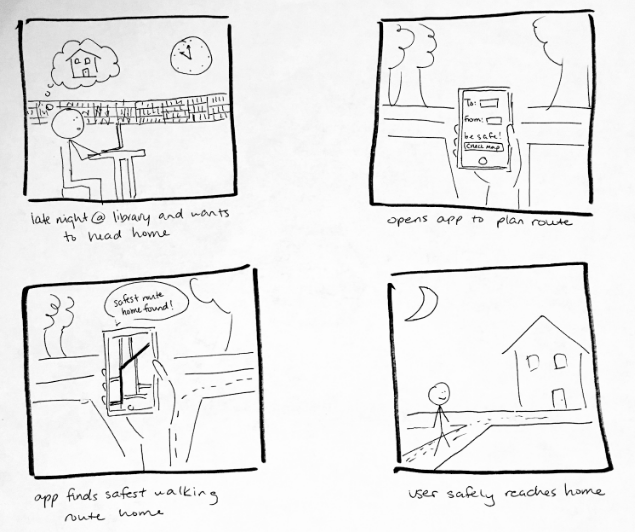 late night @ library and wants
to head home
To:
from:
be safe!
check map
opens app to plan route
safest route
home found!
app finds safest walking
route home
user safely reaches home